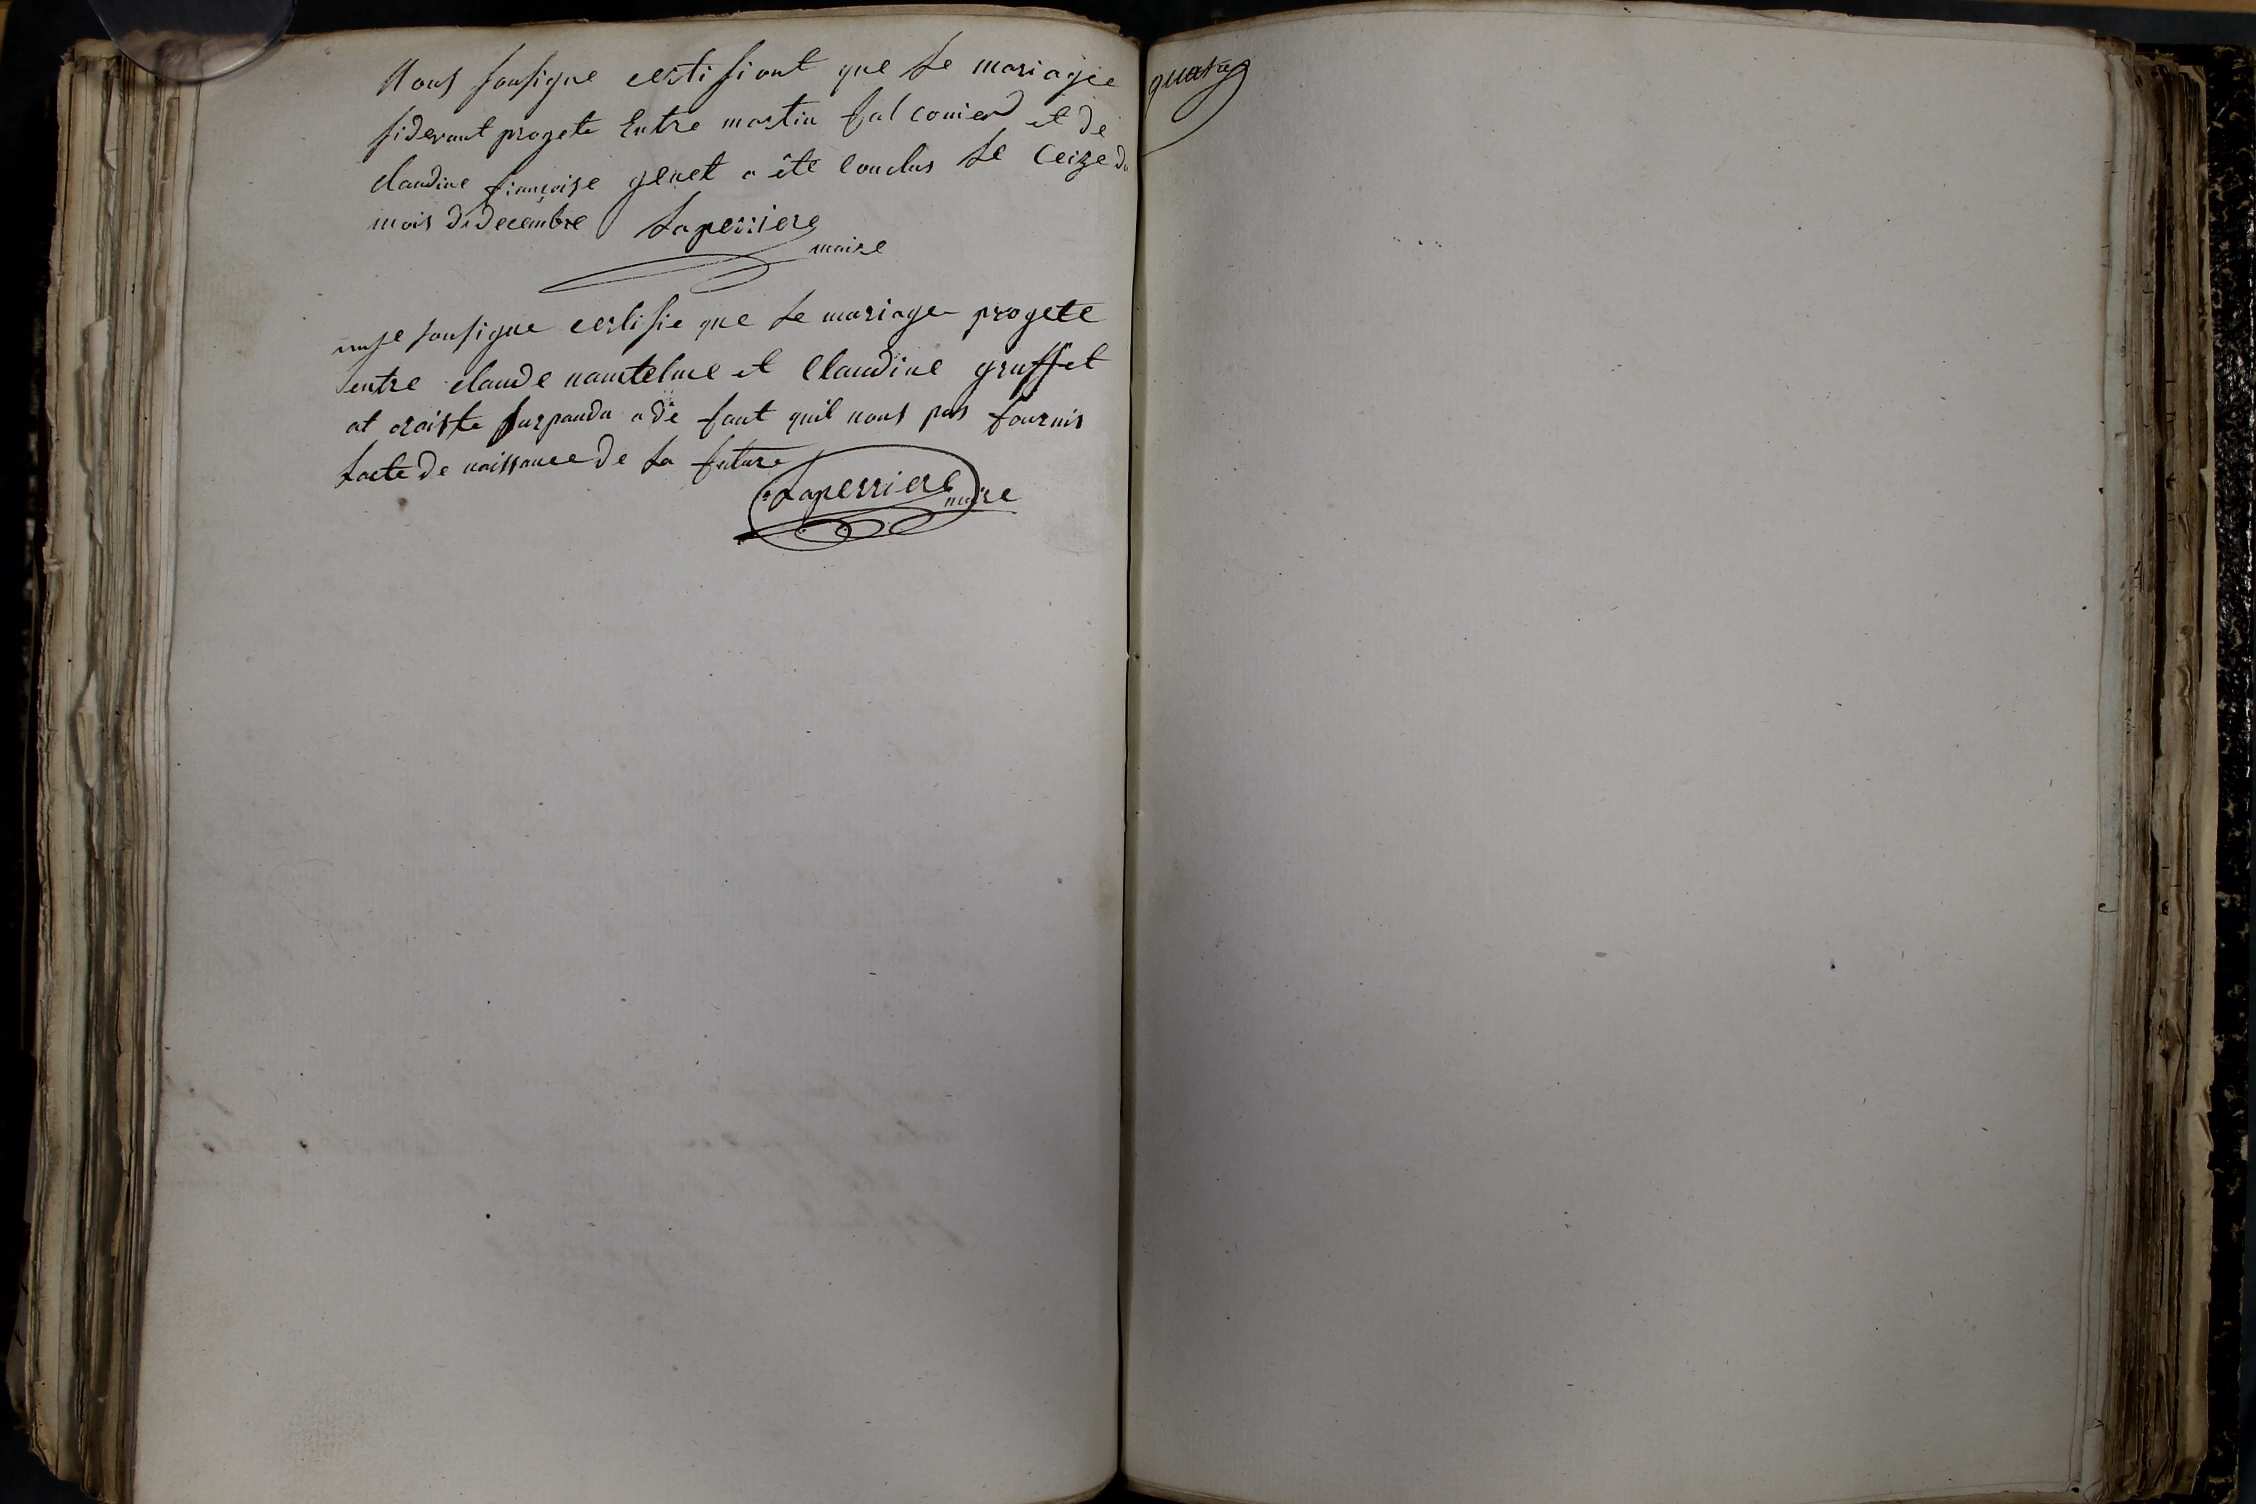 Nous sousigne certifiont que Le mariage
sidevant progete Entre martin falconier et de
claudine françoise genet a ête Conclus Le Ceize du
mois de decembre Laperriere
maire
sousigne certifie que Le mariage progete
entre claude nantelme et Claudine gruffet
at craiste suspandu a de faut quil nous pas fournis
Lacte de naissance de La future
Laperriere maire